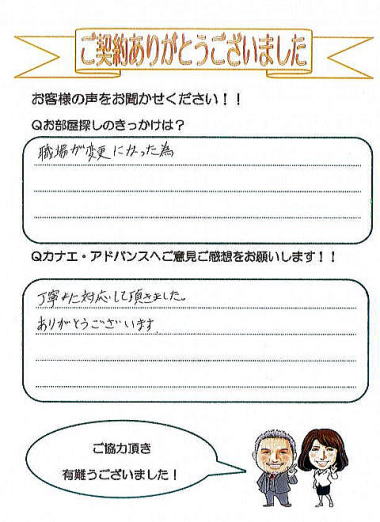 ご契約ありがとうございました
お客様の声をお聞かせください！！
Qお部屋探しのきっかけは？
職場が変更になった為
Qカナエ・アドバンスへご意見ご感想をお願いします！！
丁寧に対応して頂きました。
ありがとうございます
ご協力頂き
有難うございました！